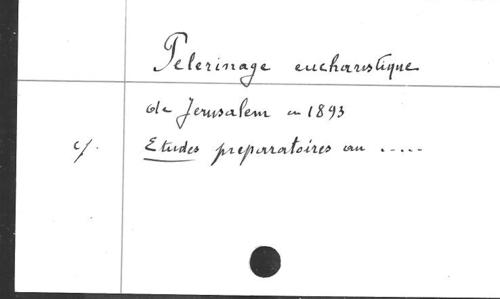 Pelerinage eucharistique
de Jerusalem en 1893
cf. Etudes preparatoires au .....